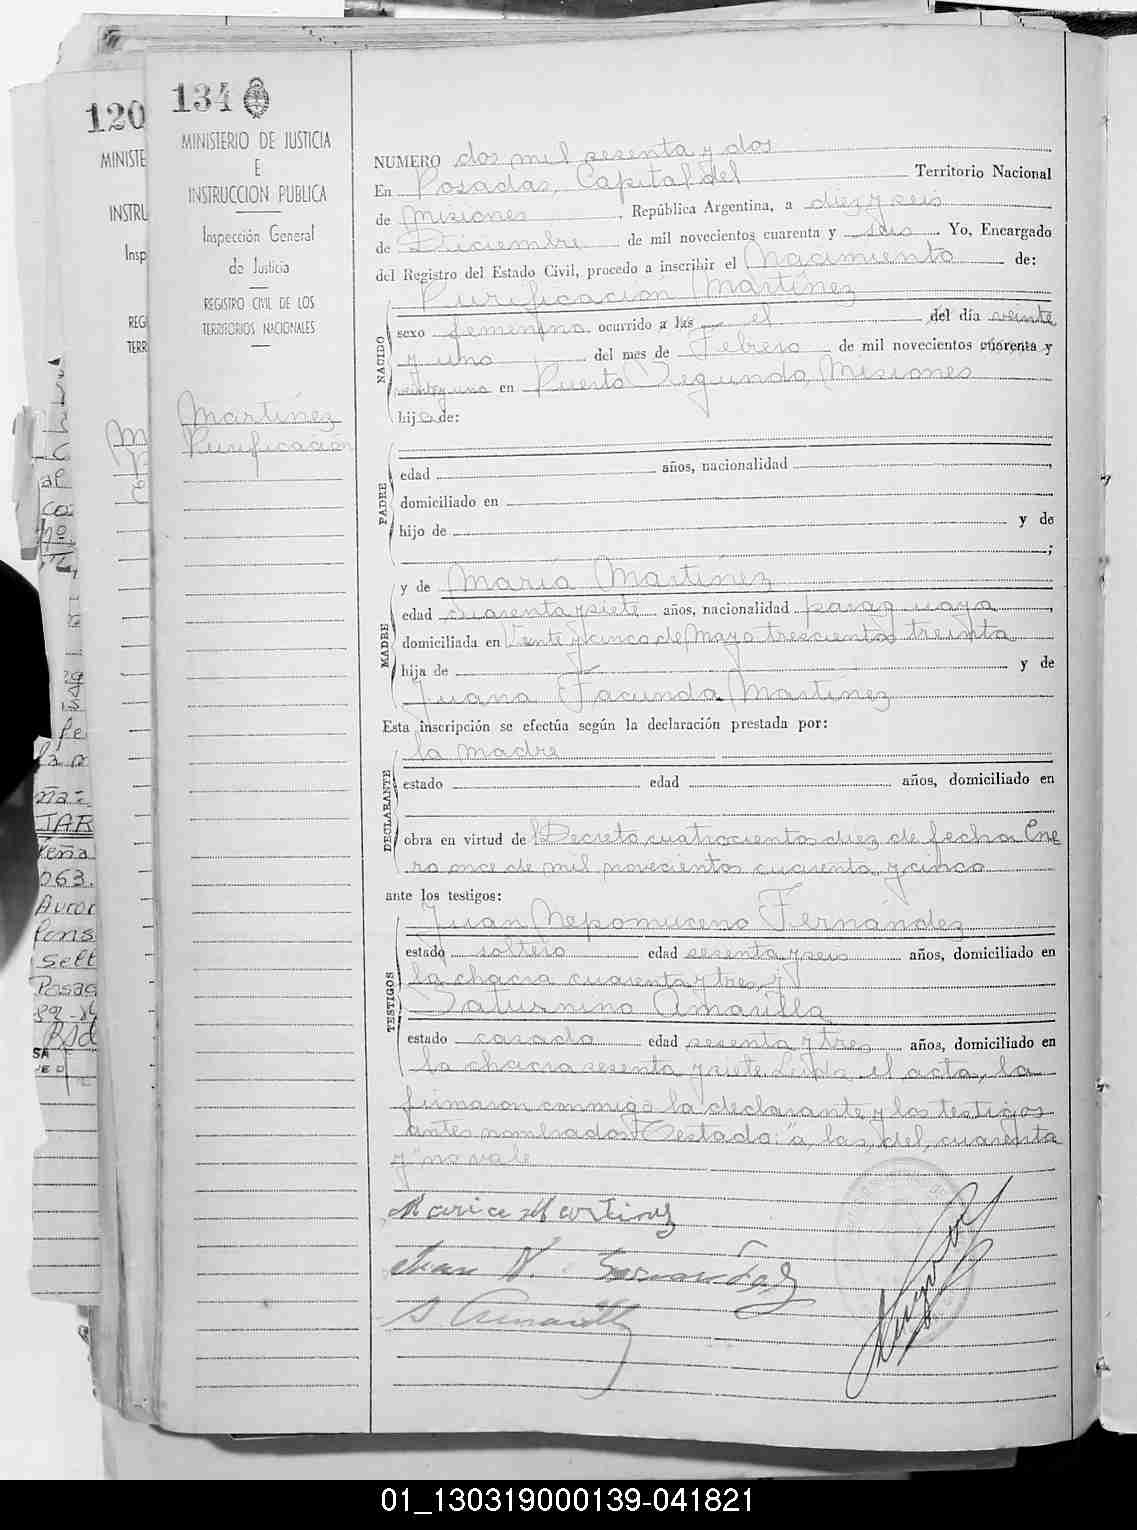 120
MINISTE
INSTRU
Insp
REG
TERR
134
MINISTERIO DE JUSTICIA
E
INSTRUCCION PUBLICA
Inspección General
de Justicia
REGISTRO CIVIL DE LOS
TERRITORIOS NACIONALES
Martínez
Purificación
NUMERO dos mil sesenta y dos
En Posadas, Capital del Territorio Nacional
de Misiones, República Argentina, a diez y seis
de Diciembre de mil novecientos cuarenta y seis. Yo, Encargado
del Registro del Estado Civil, procedo a inscribir el Nacimiento de:
NACIDO
Purificación Martínez
sexo femenino ocurrido a las el del día veinte
y uno del mes de Febrero de mil novecientos cuarenta y
veintey uno en Puerto Segundo, Misiones
hija de:
PADRE
edad años, nacionalidad ,
domiciliado en
hijo de y de
;
MADRE
y de María Martínez
edad cuarenta y siete años, nacionalidad paraguaya,
domiciliada en Veinte y cinco de Mayo trescientos treinta
hija de y de
Juana Facunda Martínez
Esta inscripción se efectúa según la declaración prestada por:
DECLARANTE
la madre
estado edad años, domiciliado en
obra en virtud de Decreto cuatrocientos diez de fecha Ene
ro once de mil novecientos cuarenta y cinco
ante los testigos:
TESTIGOS
Juan Nepomuceno Fernández
estado soltero edad sesenta y seis años, domiciliado en
la chacra cuarenta y tres y
Saturnino Amarilla
estado casado edad sesenta y tres años, domiciliado en
la chacra sesenta y siete. Leída el acta, la
firmaron conmigo la declarante y los testigos
antes nombrados. Testado: "a, las, del, cuarenta
y" no vale
Maria Martinez
Juan N. Fernandez
S Amarilla
01_130319000139-041821